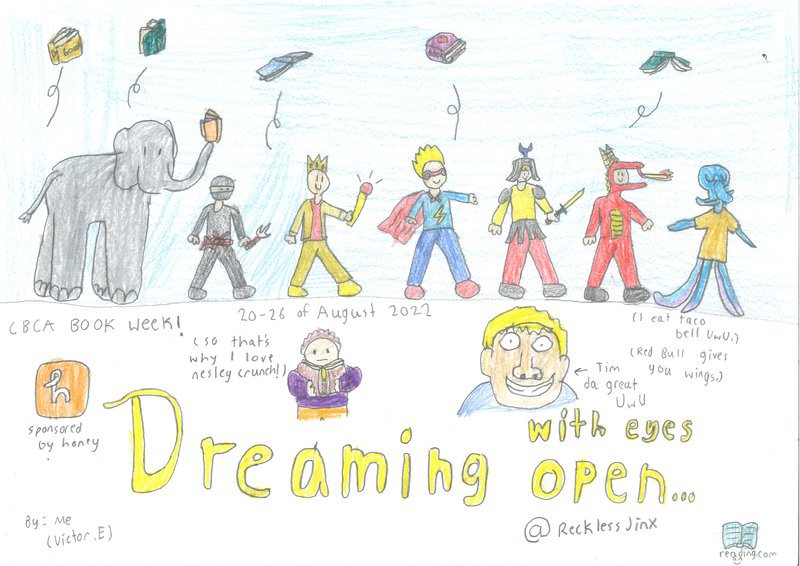 CBCA BOOK Week!
20-26 of August 2022
(so that's
why I love
nesley crunch!)
(I eat taco
bell UwU.)
(Red Bull gives
you wings.)
← Tim
da great
UwU
h
sponsored
by honey
Dreaming
with eyes
open...
By: Me
(Victor.E)
@RecklessJinx
reading.com